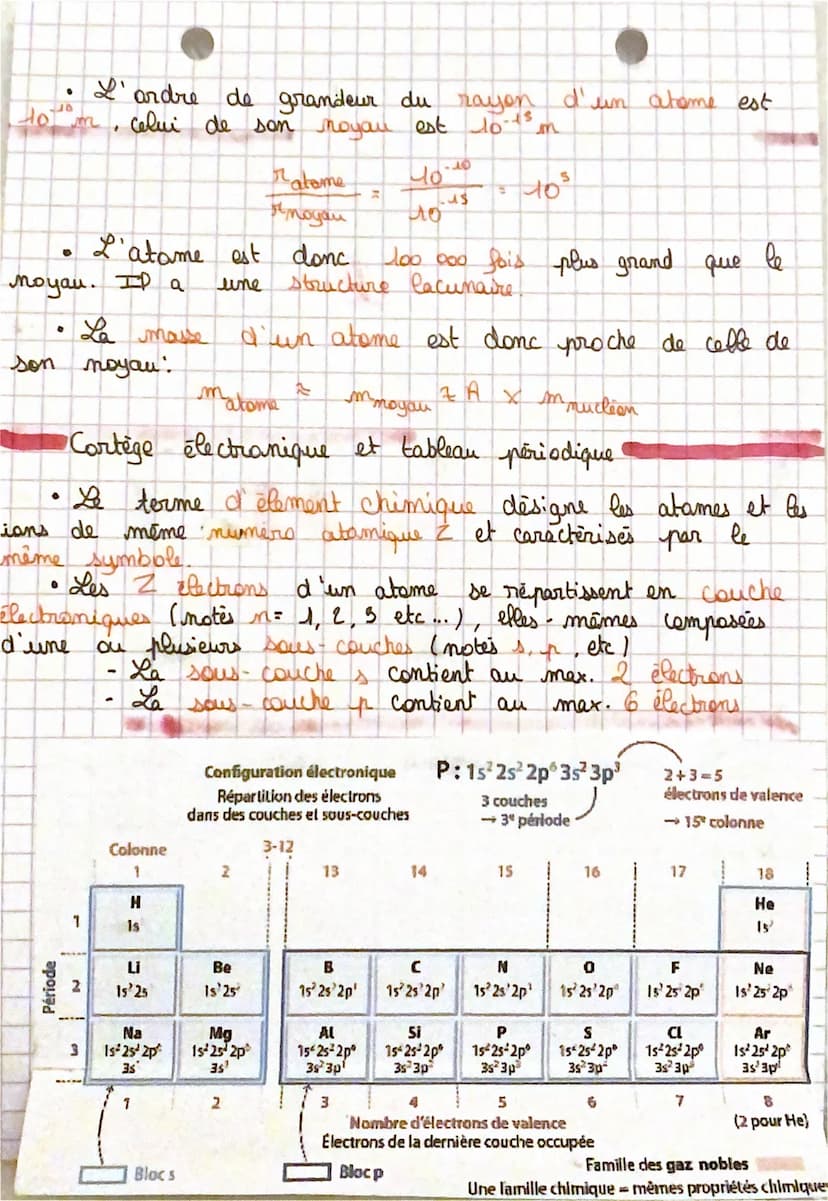 • L'ordre de grandeur du rayon d'un atome est
10⁻¹⁰ m, celui de son noyau est 10⁻¹⁵ m
r atome / r noyau = 10⁻¹⁰ / 10⁻¹⁵ = 10⁵
• L'atome est donc 100 000 fois plus grand que le
noyau. Il a une structure lacunaire.
• La masse d'un atome est donc proche de celle de
son noyau :
m atome ≈ m noyau ≈ A × m nucléon
Cortège électronique et tableau périodique
• Le terme d'élément chimique désigne les atomes et les
ions de même numéro atomique Z et caractérisés par le
même symbole.
• Les Z électrons d'un atome se répartissent en couche
électroniques (notés n = 1, 2, 3 etc...), elles-mêmes composées
d'une ou plusieurs sous-couches (notés s, p, etc)
- La sous-couche s contient au max. 2 électrons
- La sous-couche p contient au max. 6 électrons
Configuration électronique P : 1s² 2s² 2p⁶ 3s² 3p³ 2 + 3 = 5
Répartition des électrons 3 couches électrons de valence
dans des couches et sous-couches → 3ᵉ période → 15ᵉ colonne
Colonne 3-12
1 2 13 14 15 16 17 18
H He
1 1s 1s²
Période
Li Be B C N O F Ne
2 1s²2s 1s²2s² 1s²2s²2p¹ 1s²2s²2p 1s²2s²2p 1s²2s²2p 1s²2s²2p 1s²2s²2p
Na Mg Al Si P S Cl Ar
3 1s²2s²2p⁶ 1s²2s²2p⁶ 1s²2s²2p⁶ 1s²2s²2p⁶ 1s²2s²2p⁶ 1s²2s²2p⁶ 1s²2s²2p⁶ 1s²2s²2p⁶
3s 3s 3s²3p¹ 3s²3p 3s²3p 3s²3p 3s²3p 3s²3p
1 2 3 4 5 6 7 8
Nombre d'électrons de valence (2 pour He)
Électrons de la dernière couche occupée
Bloc s Bloc p Famille des gaz nobles
Une famille chimique = mêmes propriétés chimique